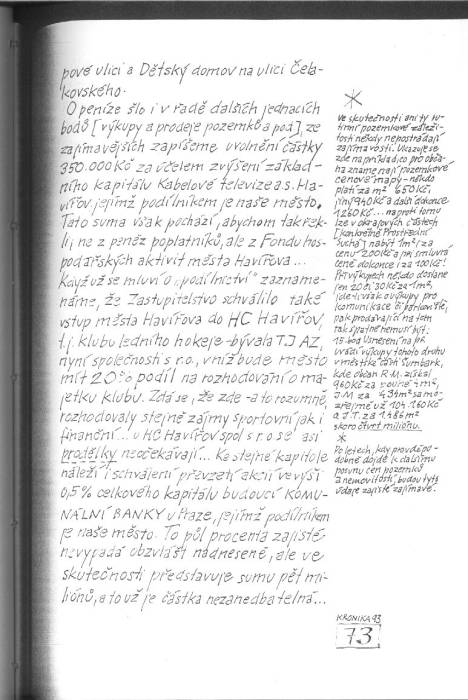 pové ulici a Dětský domov na ulici Čela-
kovského.
O peníze šlo i v řadě dalších jednacích
bodů [výkupy a prodeje pozemků a pod], ze
zajímavějších zapíšeme uvolnění částky
350.000 Kč za účelem zvýšení základ-
ního kapitálu Kabelové televize a.s. Ha-
vířov, jejímž podílníkem je naše město.
Tato suma však pochází, abychom tak řek-
li, ne z peněz poplatníků, ale z Fondu hos-
podářských aktivit města Havířova...
Když už se mluví o „podílnictví" zazname-
náme, že Zastupitelstvo schválilo také
vstup města Havířova do HC Havířov,
t.j. klubu ledního hokeje - bývala TJ AZ,
nyní společnosti s r.o., v níž bude město
mít 20% podíl na rozhodování o ma-
jetku klubu. Zdá se, že zde - a to rozumně,
rozhodovaly stejně zájmy sportovní jak i
finanční... u HC Havířov spol s r.o se asi
prodělky neočekávají... Ke stejné kapitole
náleží i schválení převzetí akcií ve výši
0,5% celkového kapitálu budoucí KOMU-
NÁLNÍ BANKY v Praze, jejímž podílníkem
je naše město. To půl procenta zajisté
nevypadá obzvlášť nadneseně, ale ve
skutečnosti představuje sumu pět mi-
liónů, a to už je částka nezanedbatelná...
Ve skutečnosti ani ty ru-
tinní pozemkové záleži-
tosti někdy nepostrádají
zajímavosti. Ukazuje se
zde například, co pro obča-
na znamenají pozemkové
cenové mapy - někdo
platí za m² 650 Kč,
jiný 940 Kč a další dokonce
1260 Kč... naproti tomu
lze v okrajových částech
[konkrétně Prostřední
Suchá] nabýt 1m² i za
cenu 200 Kč a při smluvní
ceně dokonce i za 100 Kč!
Při výkupech někdo dostane
jen 20 či 30 Kč za 1m²,
jde-li však o výkupy pro
komunikace či parkoviště,
pak prodávající na tom
tak špatně nemusí být.
15. bod Usnesení na př.
uvádí výkupy tohoto druhu
v městské části Šumbark,
kde občan R.M. získal
960 Kč za pouhé 4m²,
J.M. za 434m² samo-
zřejmě už 104.160 Kč
a J.T. za 1.486m²
skoro čtvrt miliónu.
Po letech, kdy pravděpo-
dobně dojde k dalšímu
posunu cen pozemků
a nemovitostí, budou tyto
údaje zajisté zajímavé.
KRONIKA 93
73